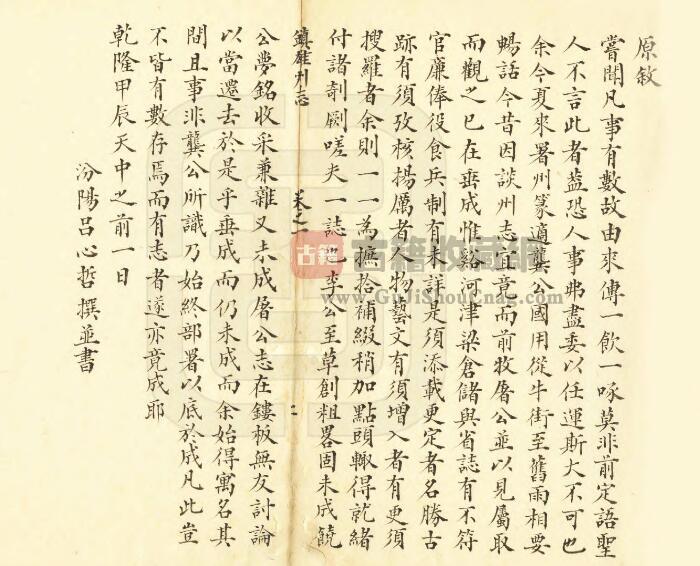 原敘
嘗聞凡事有數故由來傳一飲一啄莫非前定語聖
人不言此者蓋恐人事弗盡委以任運斯大不可也
余今夏來署州篆適龔公國用從牛街至舊雨相要
暢話今昔因談州志上竟而前牧屠公並以見屬取
而觀之已在垂成惟谿河津梁倉儲與省誌有不符
官廉俸役食兵制有未詳是須添載更定者名勝古
跡有須攷核揚厲者人物藝文有須增入者有更須
搜羅者余則一一為摭拾補綴稍加點頭輙得就緒
付諸剞劂嗟夫一誌也李公至草創粗畧固未成饒
鎮雄州志
卷之一
二
公夢銘收采兼雜又未成屠公志在鏤板無友討論
以當遷去於是乎垂成而仍未成而余始得寓名其
間且事非龔公所識乃始終部署以底於成凡此豈
不皆有數存焉而有志者遂亦竟成耶
乾隆甲辰天中之前一日
汾陽呂心哲撰並書
古籍
古籍收藏网
www.GuJiShouCang.com